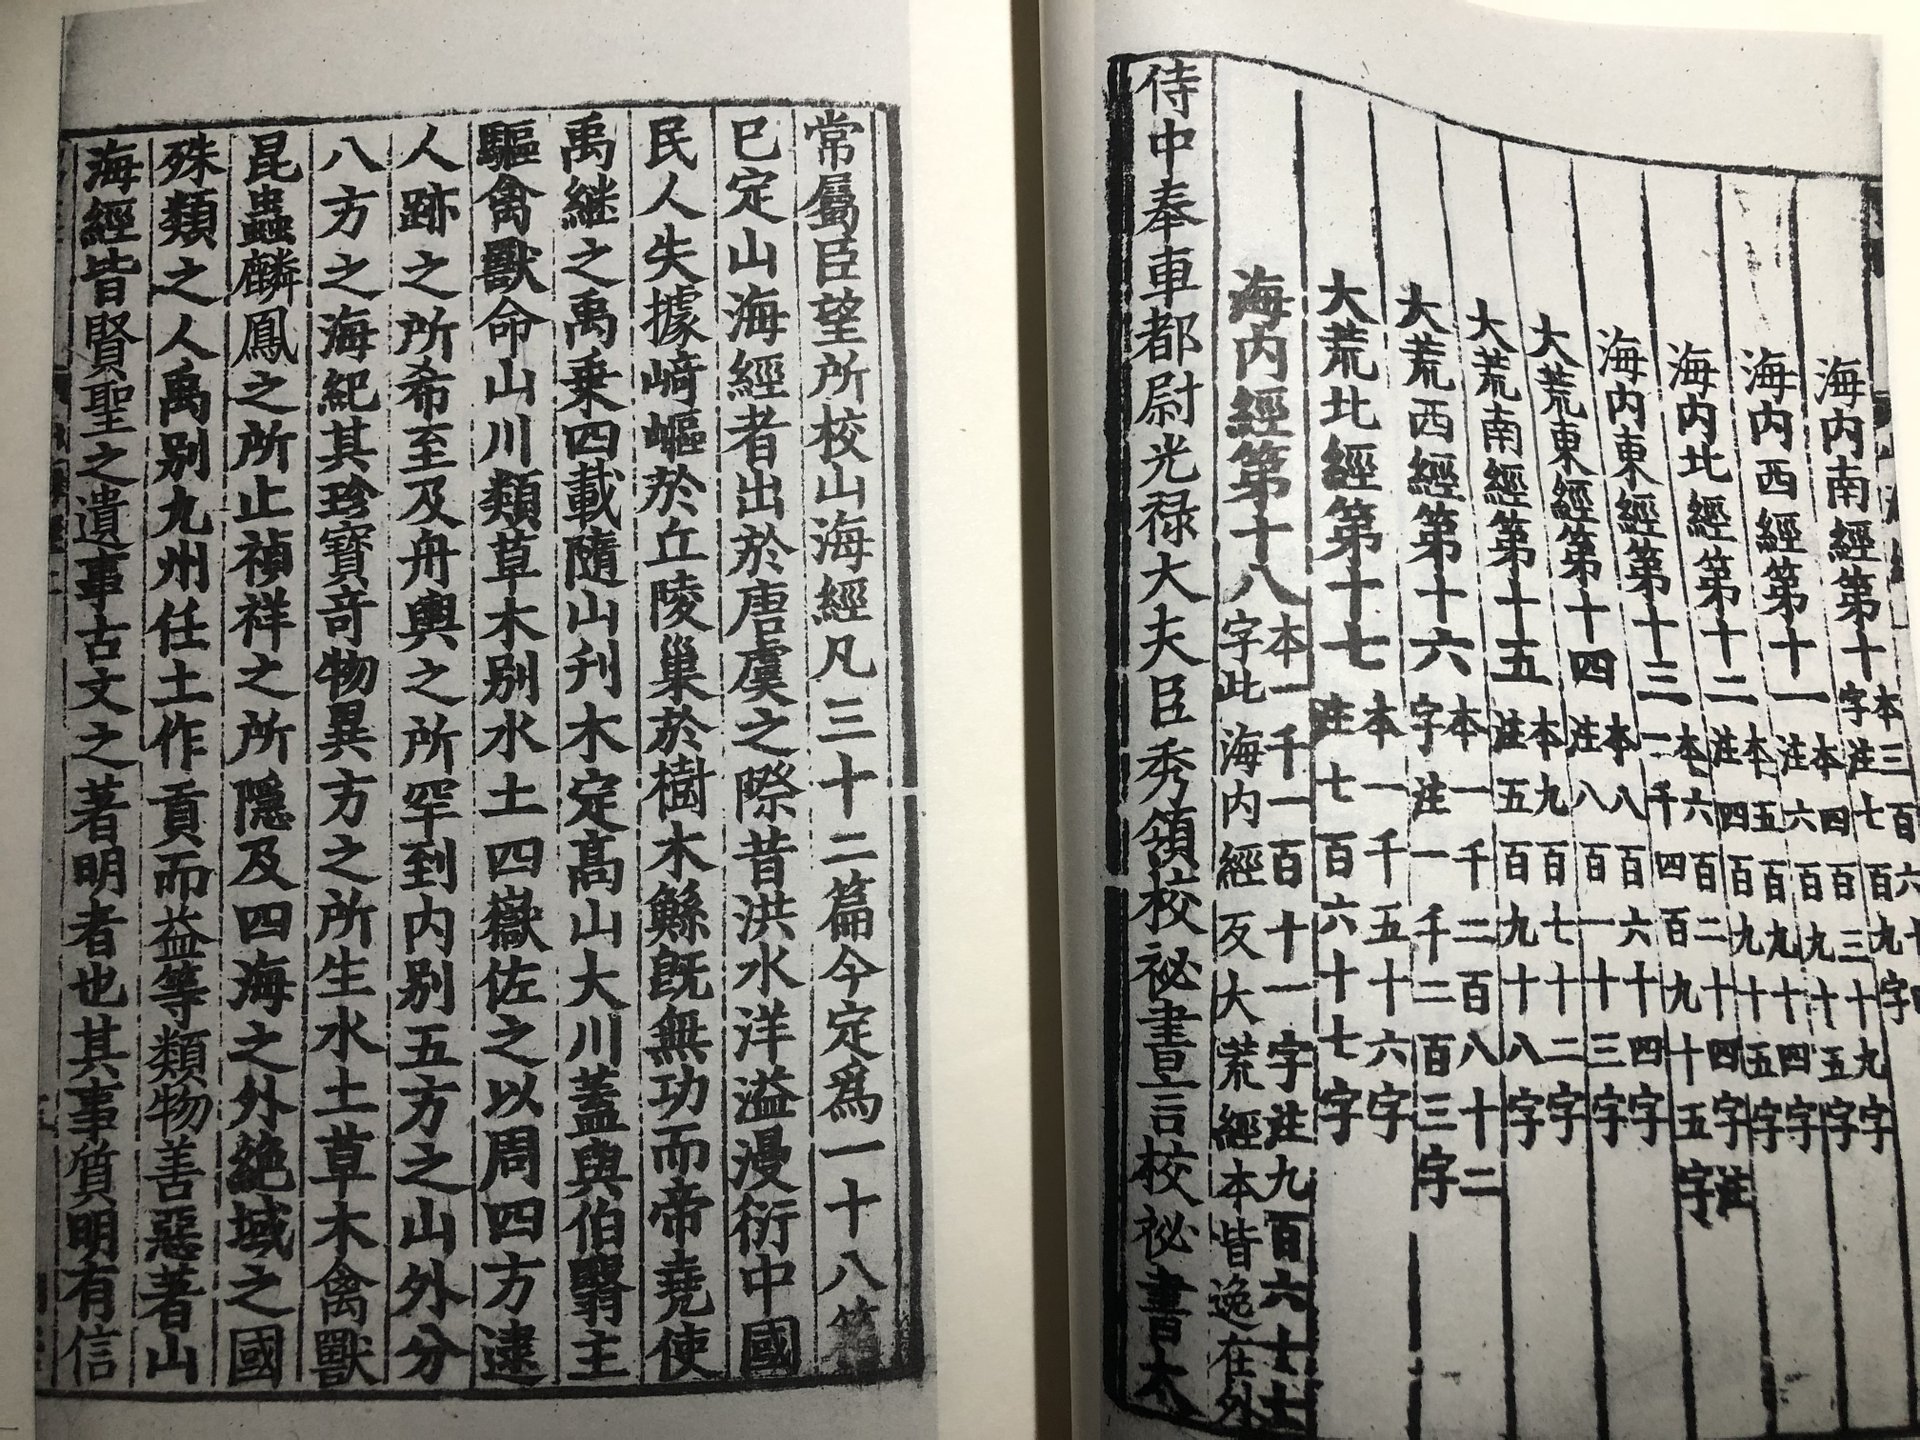 海内南經第十 本三百六十四字注七百九字
海内西經第十一 本四百三十九字注六百九十五字
海内北經第十二 本五百九十四字注四百九十五字
海内東經第十三 本六百二十四字注一千四百九十五字
大荒東經第十四 本八百六十四字注八百一十三字
大荒南經第十五 本九百七十二字注五百九十八字
大荒西經第十六 本一千二百八十二字注一千二百三字
大荒北經第十七 本一千五十六字注七百六十七字
海内經第十八 本一千一百十一字注九百六十七字此海内經及大荒經本皆逸在外
侍中奉車都尉光禄大夫臣秀領校祕書言校祕書太
常屬臣望所校山海經凡三十二篇今定爲一十八篇
已定山海經者出於唐虞之際昔洪水洋溢漫衍中國
民人失據﨑嶇於丘陵巢於樹木鯀旣無功而帝堯使
禹継之禹乗四載隨山刋木定髙山大川蓋與伯翳主
驅禽獸命山川類草木别水土四嶽佐之以周四方逮
人跡之所希至及舟輿之所罕到内别五方之山外分
八方之海紀其珍寶竒物異方之所生水土草木禽獸
昆蟲麟鳳之所止禎祥之所隱及四海之外絶域之國
殊類之人禹别九州任土作貢而益等類物善惡著山
海經皆賢聖之遺事古文之著明者也其事質明有信